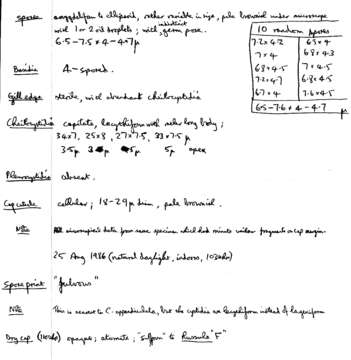 spores amygdaliform to ellipsoid, rather variable in size, pale brownish under microscope
with 1 or 2 oil droplets; with indistinct germ pore.
6.5-7.5 × 4-4.7µ
10 random spores
7.2×4.2 6.5×4
7×4 6.8×4.3
6.8×4.5 7×4.5
7.2×4.7 6.8×4.5
6.7×4 7.6×4.5
6.5-7.6 × 4-4.7 µ
Basidia 4-spored.
Gill edge sterile, with abundant cheilocystidia
Cheilocystidia capitate, lecythiform with rather long body;
34×7, 25×8, 27×7.5, 33×7.5 µ
3.5µ 3µ 5µ 5µ apex
Pleurocystidia absent.
Cap cuticle cellular; 18-29µ diam, pale brownish.
Note microscopic data from same specimen which had minute under fragments on cap margin
25 Aug 1986 (natural daylight, indoors, 1030hr)
Spore print "fulvous"
Note This is nearest to C. appendiculata, but the cystidia are lecythiform instead of lageniform
Dry cap opaque; alutaceous; "saffron" to Russula "F"